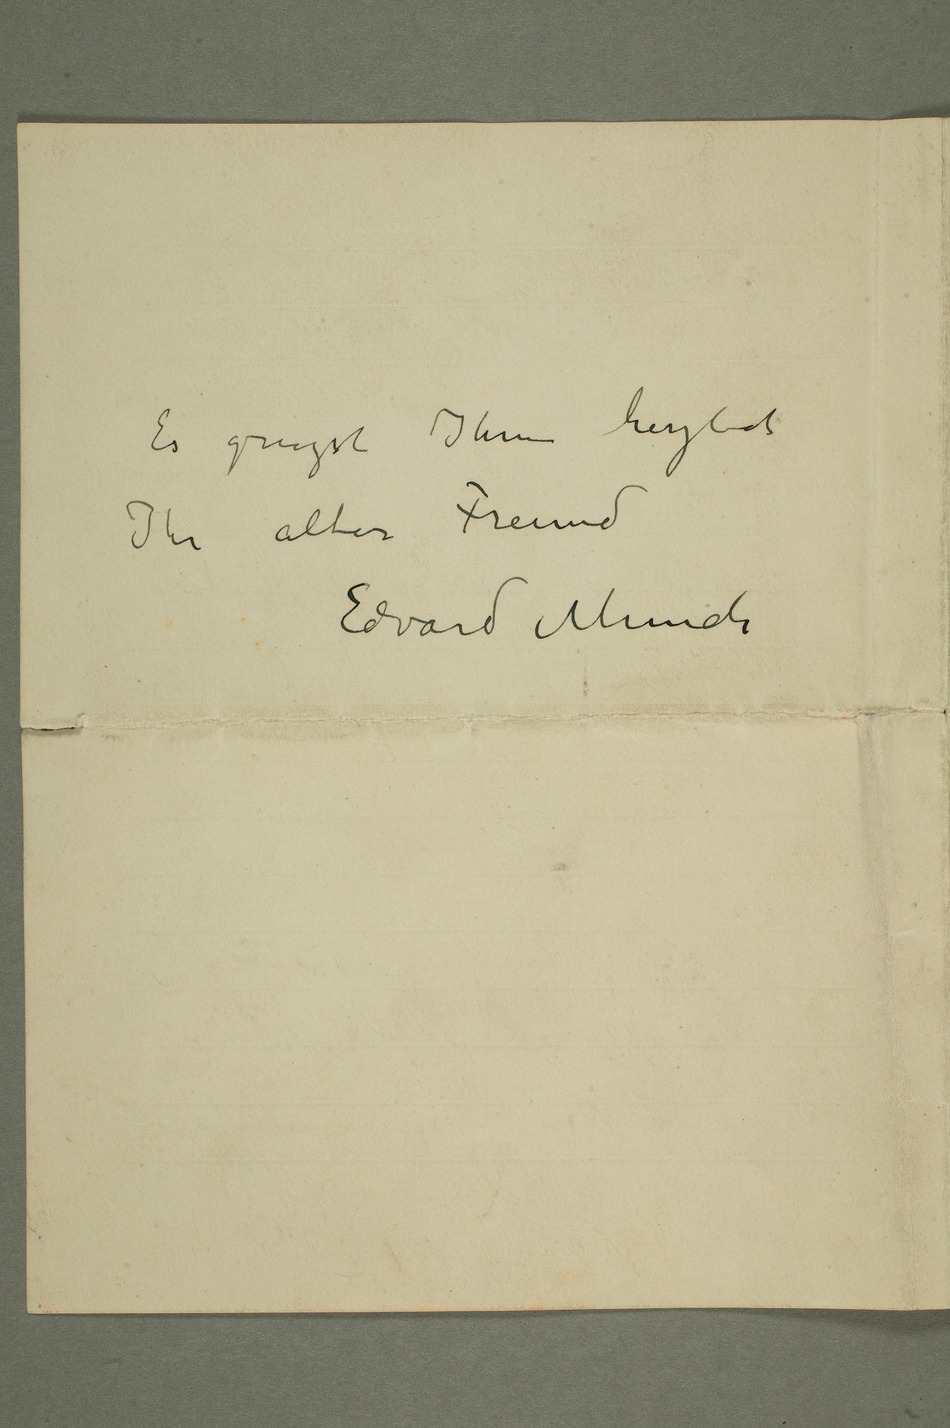 Es gruszst Ihnen herzlichst
Ihr alter Freund
Edvard Munch